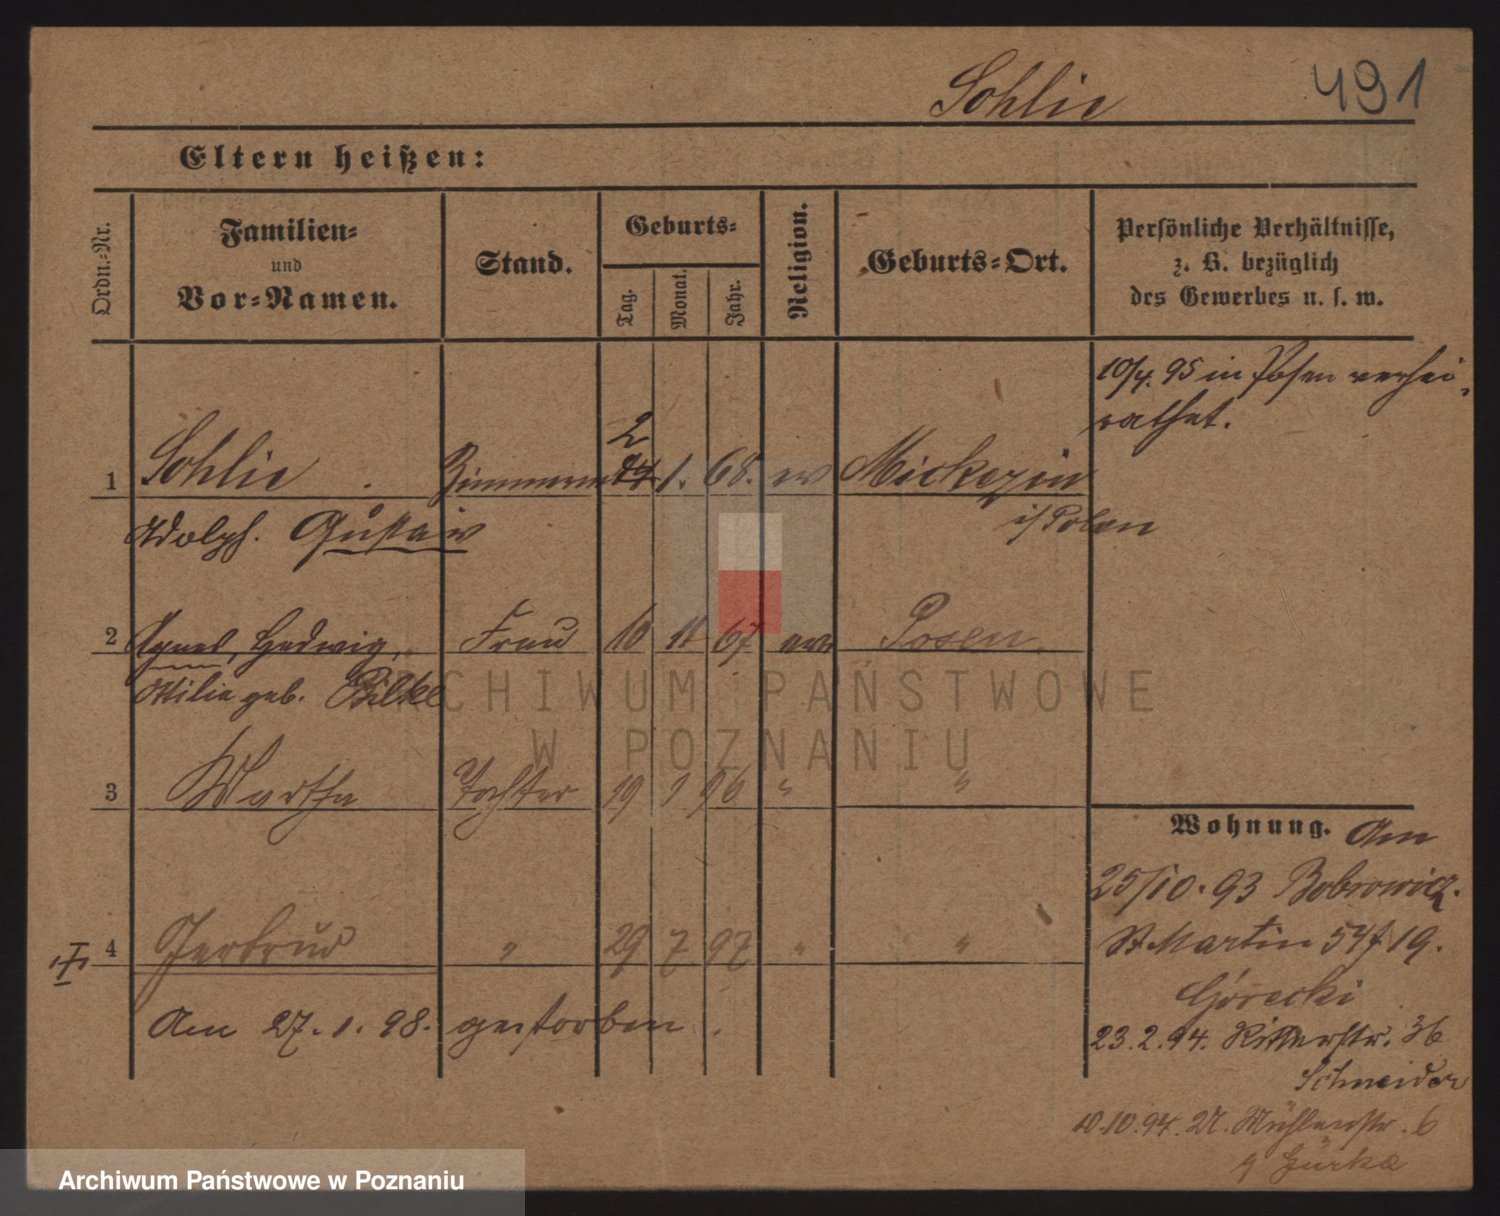 Sohlie 491
Eltern heißen:
Ordn.-Nr.
Familien-
und
Vor-Namen.
Stand.
Geburts-
Tag.
Monat.
Jahr.
Religion.
Geburts-Ort.
Persönliche Verhältnisse,
z. B. bezüglich
des Gewerbes u. s. w.
10/4. 95 in Posen verhei-
rathet.
2
1 Sohlie 1. 68. ev
Adolph. Gustav i/Polen
2 Agnes, Hedwig, Frau 10 11 67 ev Posen.
Ottilie geb. Bilke
3 Martha Tochter 19 1 96 " "
4 Gertrud " 29 7 97 " "
Am 27. 1. 98. gestorben.
Wohnung. Am
25/10. 93 Bobrowicz.
St Martin 19.
Górecki
23. 2. 94. Ritterstr. 36
Schneider
10. 10. 94. Mühlenstr. 6
ARCHIWUM PAŃSTWOWE
W POZNANIU
Archiwum Państwowe w Poznaniu